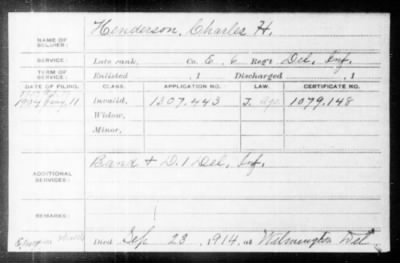 NAME OF SOLDIER: Henderson, Charles H.
SERVICE: Late rank, Co. E. 6 Reg't Del. Inf.
TERM OF SERVICE: Enlisted , 1 Discharged , 1
DATE OF FILING. CLASS. APPLICATION NO. LAW. CERTIFICATE NO.
1904 11 Invalid, 1307.443 J. 1079.148
Widow,
Minor,
ADDITIONAL SERVICES: Band & D. 1 Del. Inf.
REMARKS:
Died Sep 23, 1914, at Wilmington Del